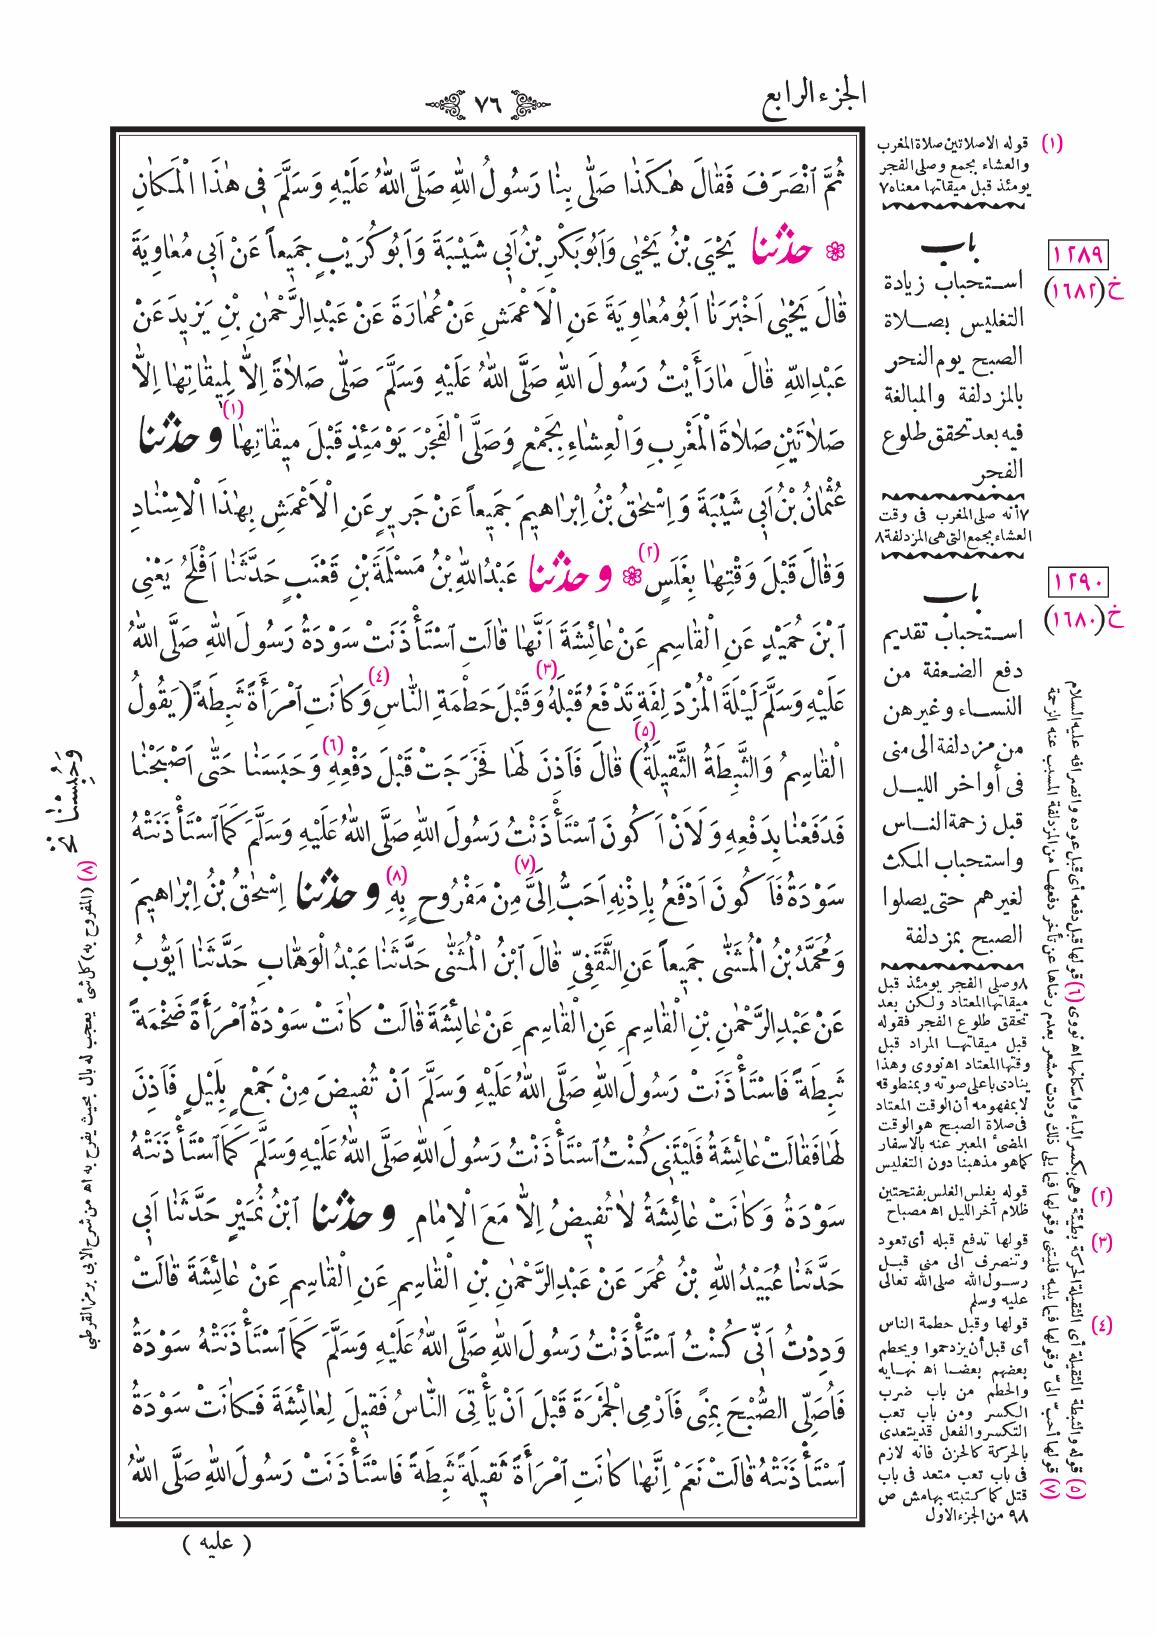 الجزء الرابع
٧٦
ثُمَّ ٱنْصَرَفَ فَقَالَ هٰكَذَا صَلّٰى بِنَا رَسُولُ اللهِ صَلَّى اللهُ عَلَيْهِ وَسَلَّمَ فِى هٰذَا الْمَكَانِ
❁ حدثنا يَحْيَى بْنُ يَحْيٰى وَاَبُوبَكْرِ بْنُ اَبِى شَيْبَةَ وَاَبُوكُرَيْبٍ جَمِيعاً عَنْ اَبِى مُعَاوِيَةَ
قَالَ يَحْيٰى اَخْبَرَنَا اَبُو مُعَاوِيَةَ عَنِ الْاَعْمَشِ عَنْ عُمَارَةَ عَنْ عَبْدِ الرَّحْمٰنِ بْنِ يَزِيدَ عَنْ
عَبْدِ اللهِ قَالَ مَا رَأَيْتُ رَسُولَ اللهِ صَلَّى اللهُ عَلَيْهِ وَسَلَّمَ صَلّٰى صَلَاةً اِلاَّ لِمِيقَاتِهَا اِلاَّ
صَلاَتَيْنِ صَلاَةَ الْمَغْرِبِ وَالْعِشَاءِ بِجَمْعٍ وَصَلَّى الْفَجْرَ يَوْمَئِذٍ قَبْلَ مِيقَاتِهَا (١) و حدثنا
عُثْمَانُ بْنُ اَبِى شَيْبَةَ وَ اِسْحٰقُ بْنُ اِبْرَاهِيمَ جَمِيعاً عَنْ جَرِيرٍ عَنِ الْاَعْمَشِ بِهٰذَا الْاِسْنَادِ
وَقَالَ قَبْلَ وَقْتِهَا بِغَلَسٍ (٢) ❁ و حدثنا عَبْدُ اللهِ بْنُ مَسْلَمَةَ بْنِ قَعْنَبٍ حَدَّثَنَا اَفْلَحُ يَعْنِى
ٱبْنَ حُمَيْدٍ عَنِ الْقَاسِمِ عَنْ عَائِشَةَ اَنَّهَا قَالَتِ ٱسْتَأْذَنَتْ سَوْدَةُ رَسُولَ اللهِ صَلَّى اللهُ
عَلَيْهِ وَسَلَّمَ لَيْلَةَ الْمُزْدَلِفَةِ تَدْفَعُ قَبْلَهُ (٣) وَقَبْلَ حَطْمَةِ النَّاسِ (٤) وَكَانَتِ ٱمْرَأَةً ثَبِطَةً ( يَقُولُ
الْقَاسِمُ وَالثَّبِطَةُ الثَّقِيلَةُ ) (٥) قَالَ فَاَذِنَ لَهَا فَخَرَجَتْ قَبْلَ دَفْعِهِ (٦) وَحَبَسَنَا حَتَّى اَصْبَحْنَا
فَدَفَعْنَا بِدَفْعِهِ وَلَاَنْ اَكُونَ ٱسْتَأْذَنْتُ رَسُولَ اللهِ صَلَّى اللهُ عَلَيْهِ وَسَلَّمَ كَمَا ٱسْتَأْذَنَتْهُ
سَوْدَةُ فَاَكُونَ اَدْفَعُ بِاِذْنِهِ اَحَبُّ اِلَىَّ (٧) مِنْ مَفْرُوحٍ بِهِ (٨) و حدثنا اِسْحٰقُ بْنُ اِبْرَاهِيمَ
وَمُحَمَّدُ بْنُ الْمُثَنّٰى جَمِيعاً عَنِ الثَّقَفِىِّ قَالَ ٱبْنُ الْمُثَنّٰى حَدَّثَنَا عَبْدُ الْوَهَّابِ حَدَّثَنَا اَيُّوبُ
عَنْ عَبْدِ الرَّحْمٰنِ بْنِ الْقَاسِمِ عَنِ الْقَاسِمِ عَنْ عَائِشَةَ قَالَتْ كَانَتْ سَوْدَةُ ٱمْرَأَةً ضَخْمَةً
ثَبِطَةً فَاسْتَأْذَنَتْ رَسُولَ اللهِ صَلَّى اللهُ عَلَيْهِ وَسَلَّمَ اَنْ تُفِيضَ مِنْ جَمْعٍ بِلَيْلٍ فَاَذِنَ
لَهَا فَقَالَتْ عَائِشَةُ فَلَيْتَنِى كُنْتُ ٱسْتَأْذَنْتُ رَسُولَ اللهِ صَلَّى اللهُ عَلَيْهِ وَسَلَّمَ كَمَا ٱسْتَأْذَنَتْهُ
سَوْدَةُ وَكَانَتْ عَائِشَةُ لاَ تُفِيضُ اِلاَّ مَعَ الْاِمَامِ و حدثنا ٱبْنُ نُمَيْرٍ حَدَّثَنَا اَبِى
حَدَّثَنَا عُبَيْدُ اللهِ بْنُ عُمَرَ عَنْ عَبْدِ الرَّحْمٰنِ بْنِ الْقَاسِمِ عَنِ الْقَاسِمِ عَنْ عَائِشَةَ قَالَتْ
وَدِدْتُ اَنِّى كُنْتُ ٱسْتَأْذَنْتُ رَسُولَ اللهِ صَلَّى اللهُ عَلَيْهِ وَسَلَّمَ كَمَا ٱسْتَأْذَنَتْهُ سَوْدَةُ
فَاُصَلِّى الصُّبْحَ بِمِنًى فَاَرْمِى الْجَمْرَةَ قَبْلَ اَنْ يَأْتِىَ النَّاسُ فَقِيلَ لِعَائِشَةَ فَكَانَتْ سَوْدَةُ
ٱسْتَأْذَنَتْهُ قَالَتْ نَعَمْ اِنَّهَا كَانَتِ ٱمْرَأَةً ثَقِيلَةً ثَبِطَةً فَاسْتَأْذَنَتْ رَسُولَ اللهِ صَلَّى اللهُ
( عليه )
(١) قوله الاصلاتين صلاة المغرب
والعشاء بجمع وصلى الفجر
يومئذ قبل ميقاتها معناه ٧
باب
١٢٨٩
خ (١٦٨٢)
استحباب زيادة
التغليس بصلاة
الصبح يوم النحر
بالمزدلفة والمبالغة
فيه بعد تحقق طلوع
الفجر
٧ أنه صلى المغرب فى وقت
العشاء بجمع التى هى المزدلفة ٨
باب
١٢٩٠
خ (١٦٨٠)
استحباب تقديم
دفع الضعفة من
النساء وغيرهن
من مزدلفة الى منى
فى أواخر الليل
قبل زحمة الناس
واستحباب المكث
لغيرهم حتى يصلوا
الصبح بمزدلفة
٨ وصلى الفجر يومئذ قبل
ميقاتها المعتاد ولكن بعد
تحقق طلوع الفجر فقوله
قبل ميقاتها المراد قبل
وقتها المعتاد اه نووى وهذا
ينادى باعلى صوته وبمنطوقه
لا بمفهومه أن الوقت المعتاد
فى صلاة الصبح هو الوقت
المضىء المعبر عنه بالاسفار
كما هو مذهبنا دون التغليس
(٢) قوله بغلس الغلس بفتحتين
ظلام آخر الليل اه مصباح
(٣) قولها تدفع قبله أى تعود
وتنصرف الى منى قبل
رسول الله صلى الله تعالى
عليه وسلم
(٤) قولها وقبل حطمة الناس
أى قبل أن يزدحموا ويحطم
بعضهم بعضا اه نهايه
والحطم من باب ضرب
الكسر ومن باب تعب
التكسر والفعل قد يتعدى
بالحركة كالحزن فانه لازم
فى باب تعب متعد فى باب
قتل كما كتبته بهامش ص
٩٨ من الجزء الاول
(٥) قوله والثبطة الثقيلة أى الثقيلة الحركة بطيئة وهى بكسر الباء واسكانها اه نووى (٦) قولها قبل دفعه أى قبل عوده وانصرافه عليه السلام
(٧) قولها أحب الىّ وقولها فيما يليه فليتنى وقولها فيما يلى ذلك وددت مشعر بعدم رضاها عن تأخر دفعها من المزدلفة المسبب عنه الزحمة
وَحُبِسْنَا نخ
(٨) (المفروح به) كل شىء يعجب له بال بحيث يفرح به اه من شرح الابى برمز القرطبى